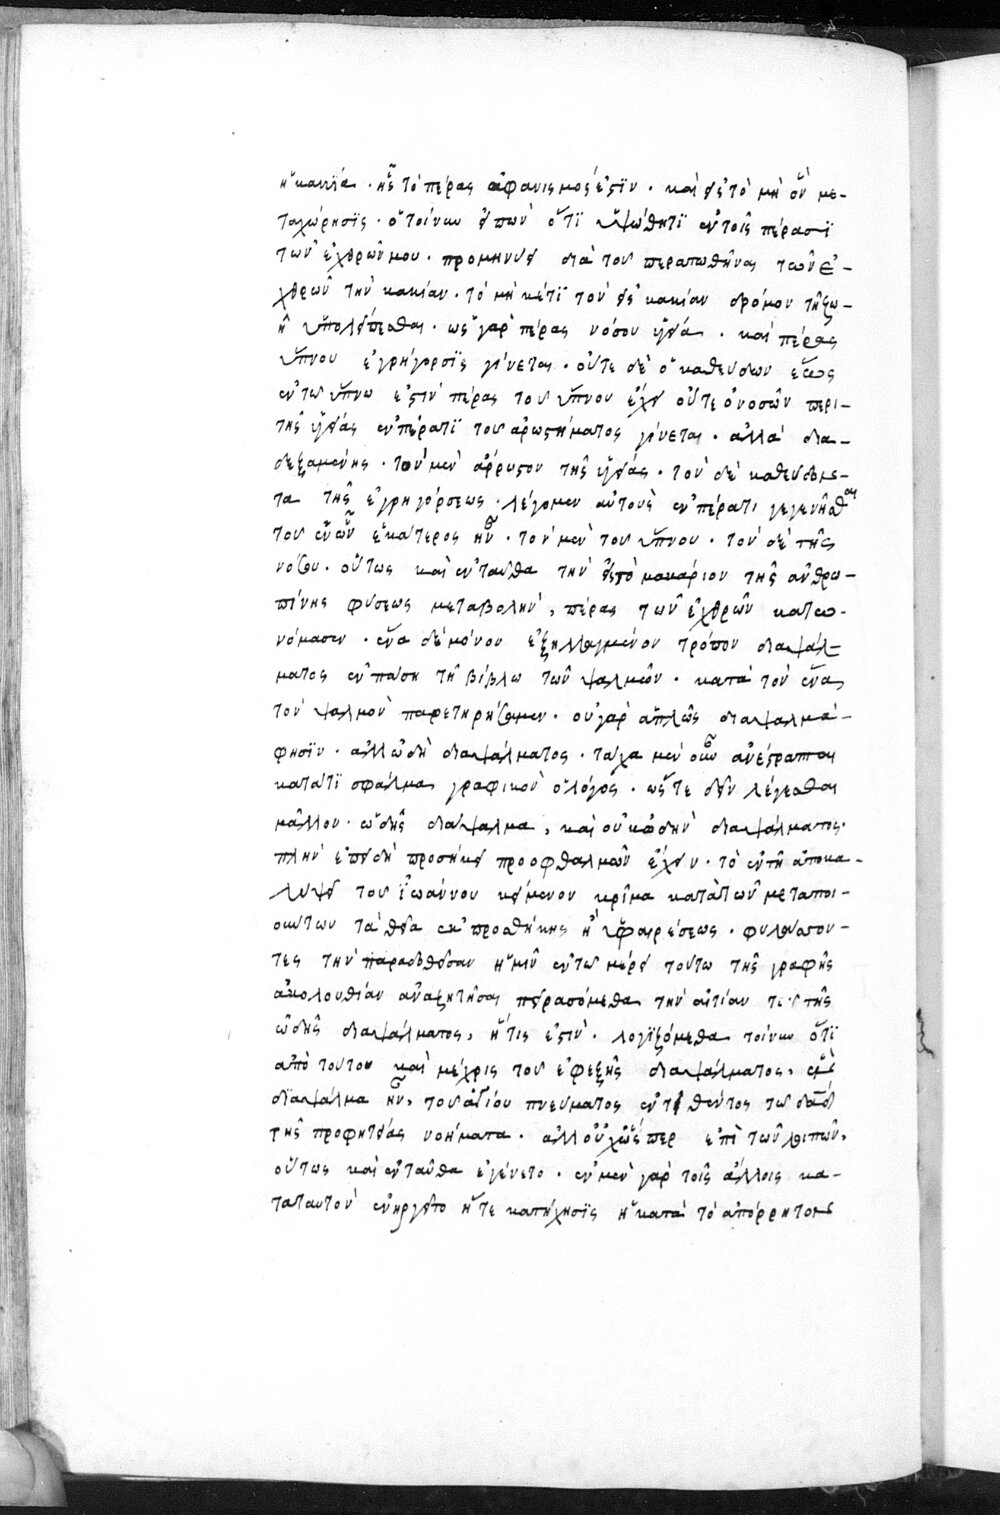 ἡ κακία · ἧς τὸ πέρας ἀφανισμός ἐστϊν · καὶ εἰς τὸ μὴ ὂν με-
ταχώρησϊς · ὁ τοίνυν εἰπὼν ὅτϊ ὑψώθητϊ ἐν τοῖς πέρασϊ
τῶν ἐχθρῶν μου · προμηνύει διὰ τοῦ περατωθῆναι τῶν ἐ-
χθρῶν τὴν κακίαν · τὸ μὴ κέτϊ τὸν εἰς κακίαν δρόμον τῇ ζω-
ῇ ὑπολείπεσθαι · ὡς γὰρ πέρας νόσου ὑγεία · καὶ πέρας
ὕπνου ἐγρήγορσϊς γίνεται · οὔτε δὲ ὁ καθεύδων ἕως
ἐν τῷ ὕπνῳ ἐστὶν πέρας τοῦ ὕπνου ἔχει οὔτε ὁ νοσῶν περι-
τῆς ὑγείας ἐν πέρατϊ τοῦ ἀρωστήματος γίνεται · ἀλλὰ δια-
δεξαμένης · τὸν μὲν ἄρρωστον τῆς ὑγείας · τὸν δὲ καθεύδον-
τα τῆς ἐγρηγόρσεως · λέγομεν αὐτοὺς ἐν πέρατι γεγενῆσθαι
τοῦ ἐν ᾧ ἑκάτερος ἦν · τὸν μὲν τοῦ ὕπνου · τὸν δὲ τῆς
νόσου · οὕτως καὶ ἐνταῦθα τὴν εἰς τὸ μακάριον τῆς ἀνθρω-
πίνης φύσεως μεταβολὴν, πέρας τῶν ἐχθρῶν κατω-
νόμασεν · ἕνα δὲ μόνον ἐξηλλαγμένον τρόπον διαψάλ-
ματος ἐν πάσῃ τῇ βίβλῳ τῶν ψαλμῶν · κατὰ τὸν ἕνα
τὸν ψαλμὸν παρετηρήσαμεν · οὐ γὰρ ἁπλῶς διάψαλμά-
φησϊν · ἀλλ ὠδὴ διαψάλματος · τάχα μὲν οὖν ἀνέστραπται
κατά τϊ σφάλμα γραφικὸν ὁ λόγος · ὥστε δεῖν λέγεσθαι
μᾶλλον · ὠδῆς διάψαλμα, καὶ οὐκ ὠδὴν διαψάλματος·
πλὴν ἐπειδὴ προσήκει προοφθαλμῶν ἔχειν · τὸ ἐν τῇ ἀποκα-
λύψει τοῦ Ἰωάννου κείμενον κρῖμα κατὰ τῶν μεταποι-
ούντων τὰ θεῖα ἐκ προσθήκης ἢ ὑφαιρέσεως · φυλάσσον-
τες τὴν παραδοθεῖσαν ἡμῖν ἐν τῷ μέρει τούτῳ τῆς γραφῆς
ἀκολουθίαν ἀναζητῆσαι πειρασόμεθα τὴν αἰτίαν τοῦ τῆς
ὠδῆς διαψάλματος, ἥτις ἐστὶν · λογϊζόμεθα τοίνυν ὅτϊ
ἀπὸ τούτου καὶ μέχρις τοῦ ἐφεξῆς διαψάλματος,
διάψαλμα ἦν, τοῦ ἁγίου πνεύματος ἐντιθέντος τῷ δαδ
τῆς προφητείας νοήματα · ἀλλ οὐχ ὥσπερ ἐπὶ τῶν λοιπῶν,
οὕτως καὶ ἐνταῦθα ἐγένετο · ἐν μὲν γὰρ τοῖς ἄλλοις κα-
ταταυτὸν ἐνηργεῖτο ἥ τε κατήχησϊς ἡ κατὰ τὸ ἀπόρρητον